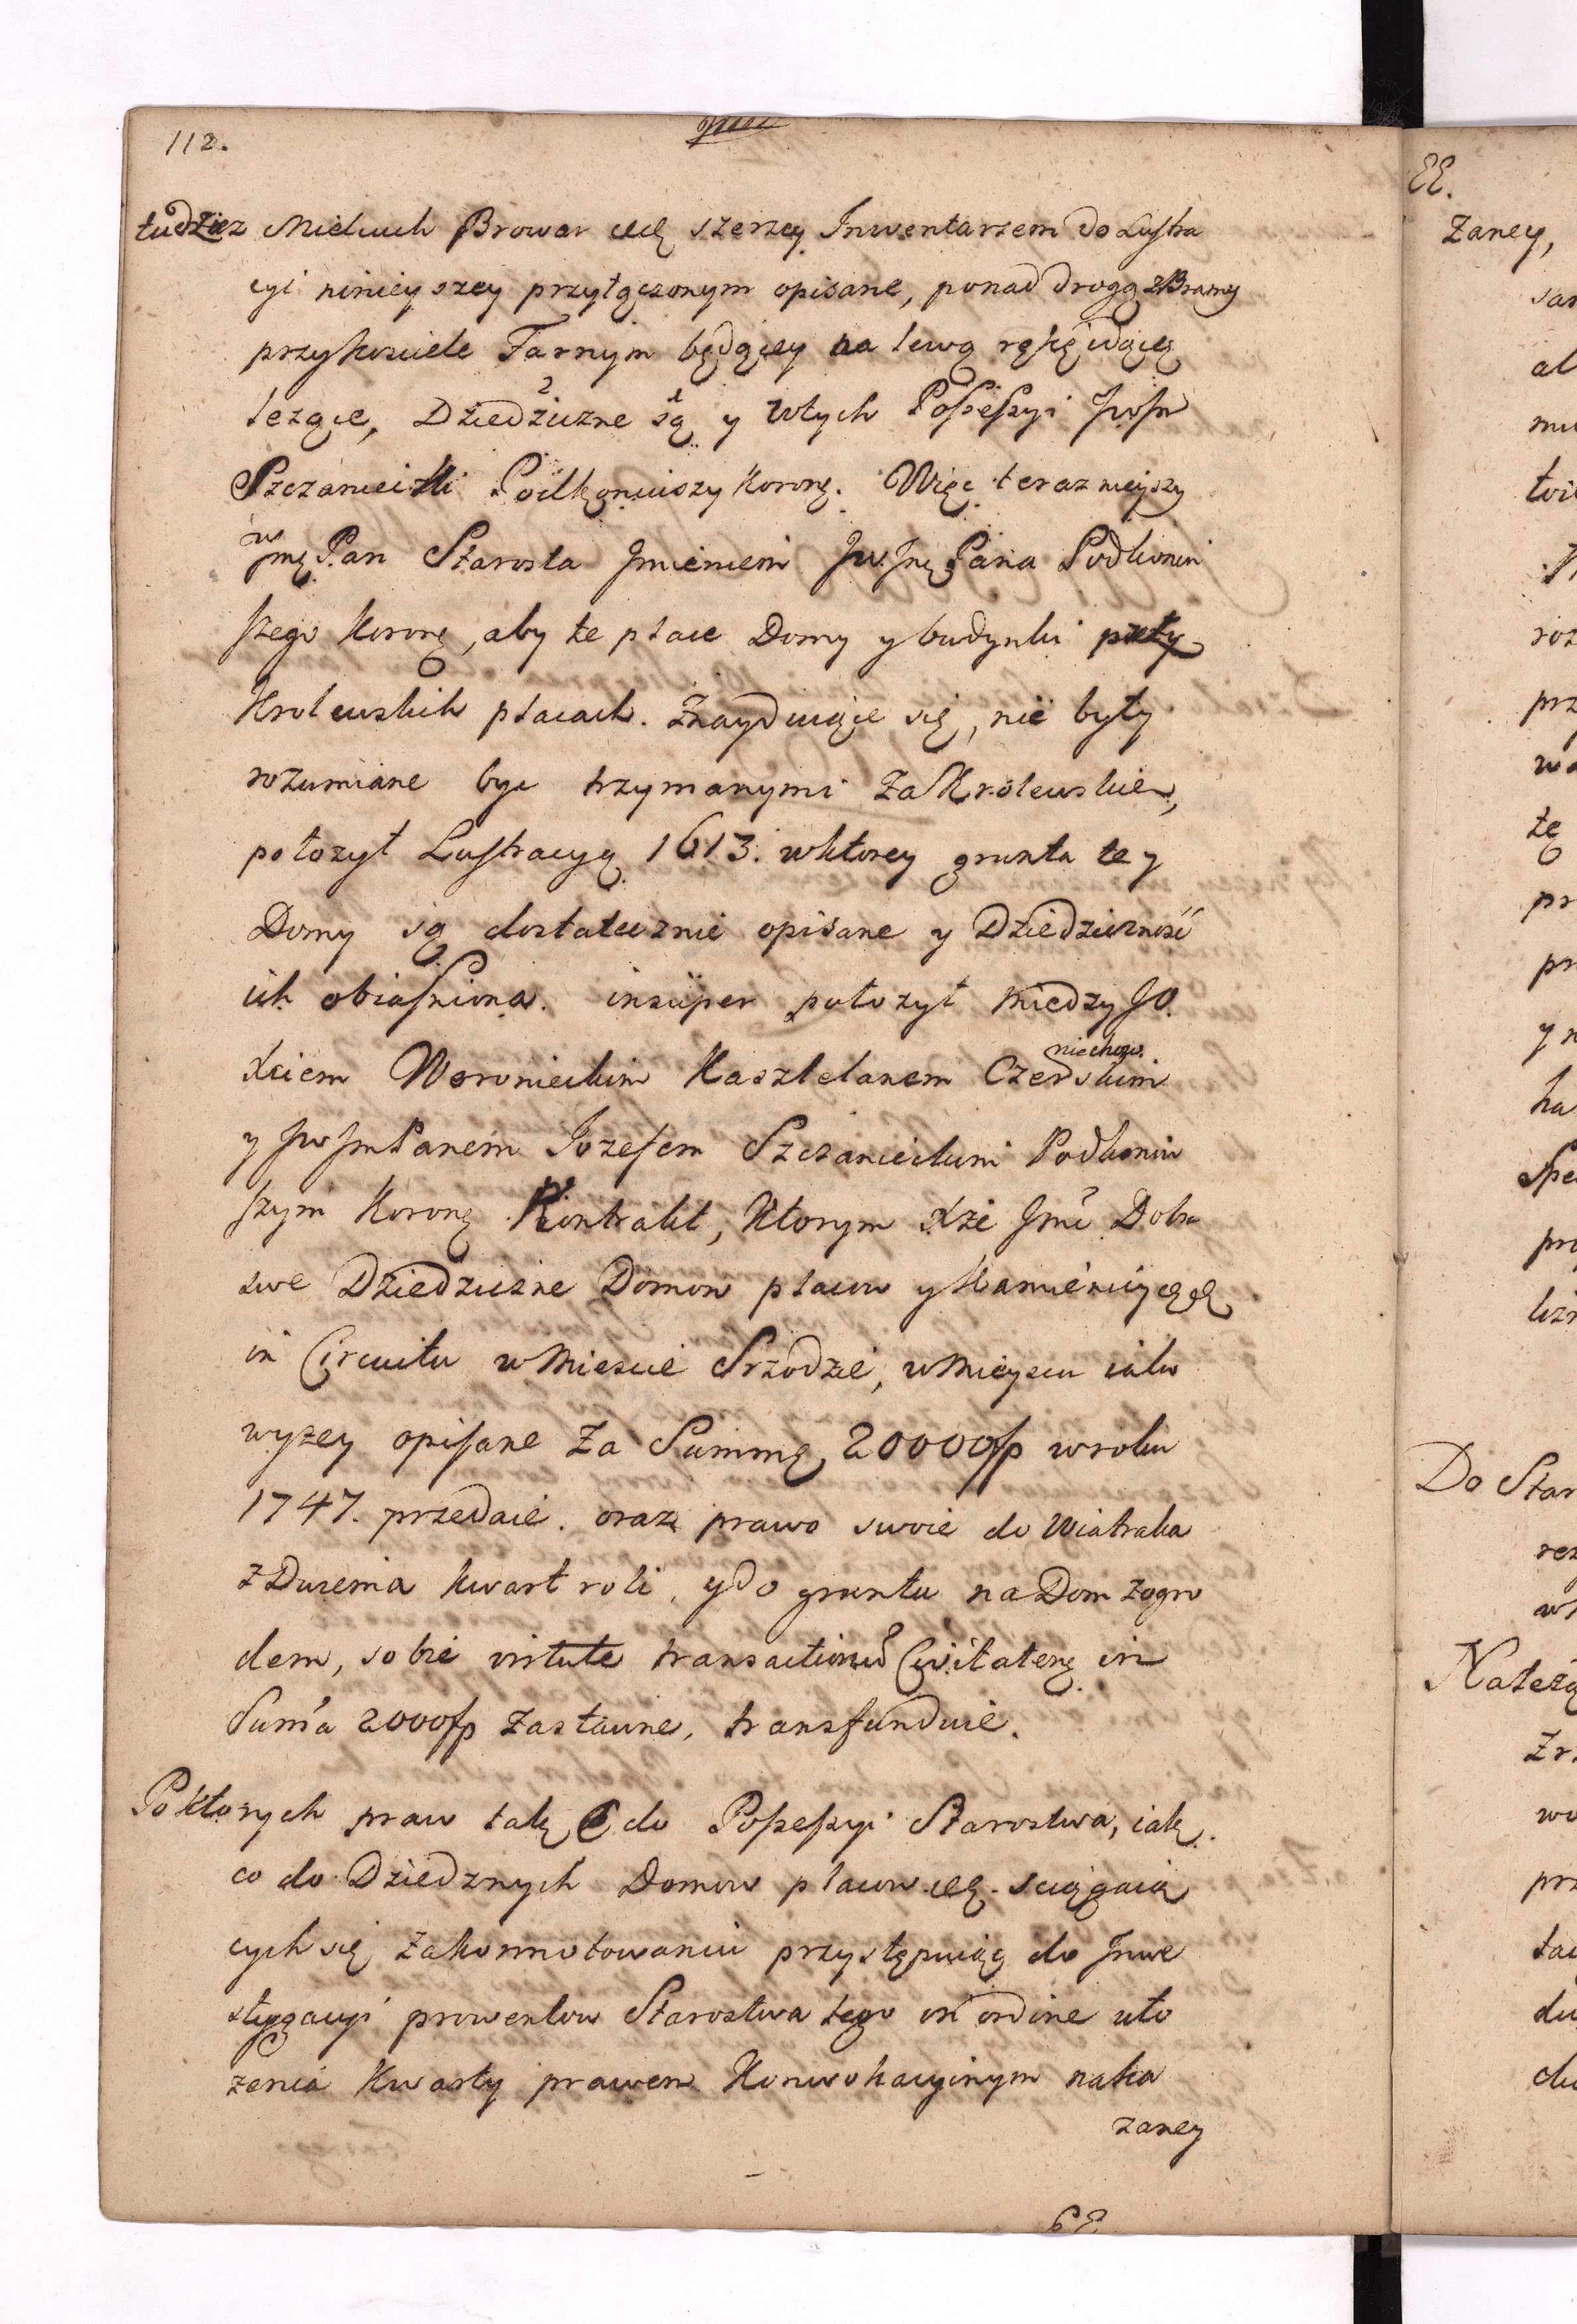 112.
tudziez Mielcuch Browar etc szerzey Inwentarzem do Lustra
cyi ninieyszey przyłączonym opisane, ponad drogą z Bramy
przy kosciele Farnym będącey na lewą rękę idącę
lezące, Dziedziczne są y w tych Possessyi JwJm
Szczaniecki Podkoniuszy Koronę. Więc teraznieyszy
Jmę Pan Starosta Jmieniem Jw. Jmę Pana Podkoniu
szego Koronę, aby te place Domy y budynki przy
Krolewskich placach znayduiące się, nie były
rozumiane byc trzymanymi za Krolewskie,
położył Lustracyą 1613. w ktorey grunta te y
Domy są dostatecznie opisane y Dziedzicznosć
ich obiasniona. insuper położył między JO.
Xciem Woronieckim Kasztelanem Czerskim
niechow.
y Jw Jm Panem Jozefem Szczanieckim Podkoniu
szym Koronę Kontrakt, ktorym Xże Jmć Dobra
swe Dziedziczne Domow placow y Kamienicy etc
in Circuitu w Miescie Srzodzie, w Mieyscu iako
wyzey opisane za Summę 20000 fp w roku
1747. przedaie. oraz prawo swoie do Wiatraka
z Dwiema kwart roli, y do gruntu na Dom z ogro
dem, sobie virtute transactionis Civitatenę in
Suma 2000 fp zastawne, transfunduie.
Po ktorych praw tak do Possessyi Starostwa, iak
co do Dziedznych Domow placow etc. sciągaią
cych się zakonnotowaniu przystępuię do Inwe
stygacyi prowentow Starostwa tego in ordine uło
zenia Kwarty prawem Konwokacyinym naka
zaney
EE.
zaney,
Do Star